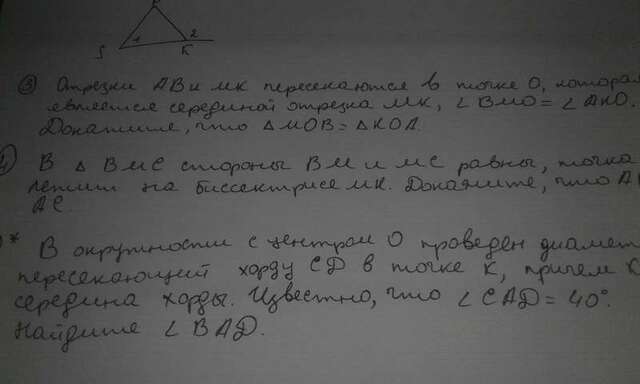 S 1 2 K
③ Отрезки АВ и МК пересекаются в точке О, которая
является серединой отрезка МК, ∠ВМО = ∠АКО.
Докажите, что △МОВ = △КОА.
В △ ВМС стороны ВМ и МС равны, точка
лежит на биссектрисе МК. Докажите, что А
АС.
* В окружности с центром О проведен диамет
пересекающий хорду СD в точке К, причем К
середина хорды. Известно, что ∠САD = 40°.
Найдите ∠ВАD.